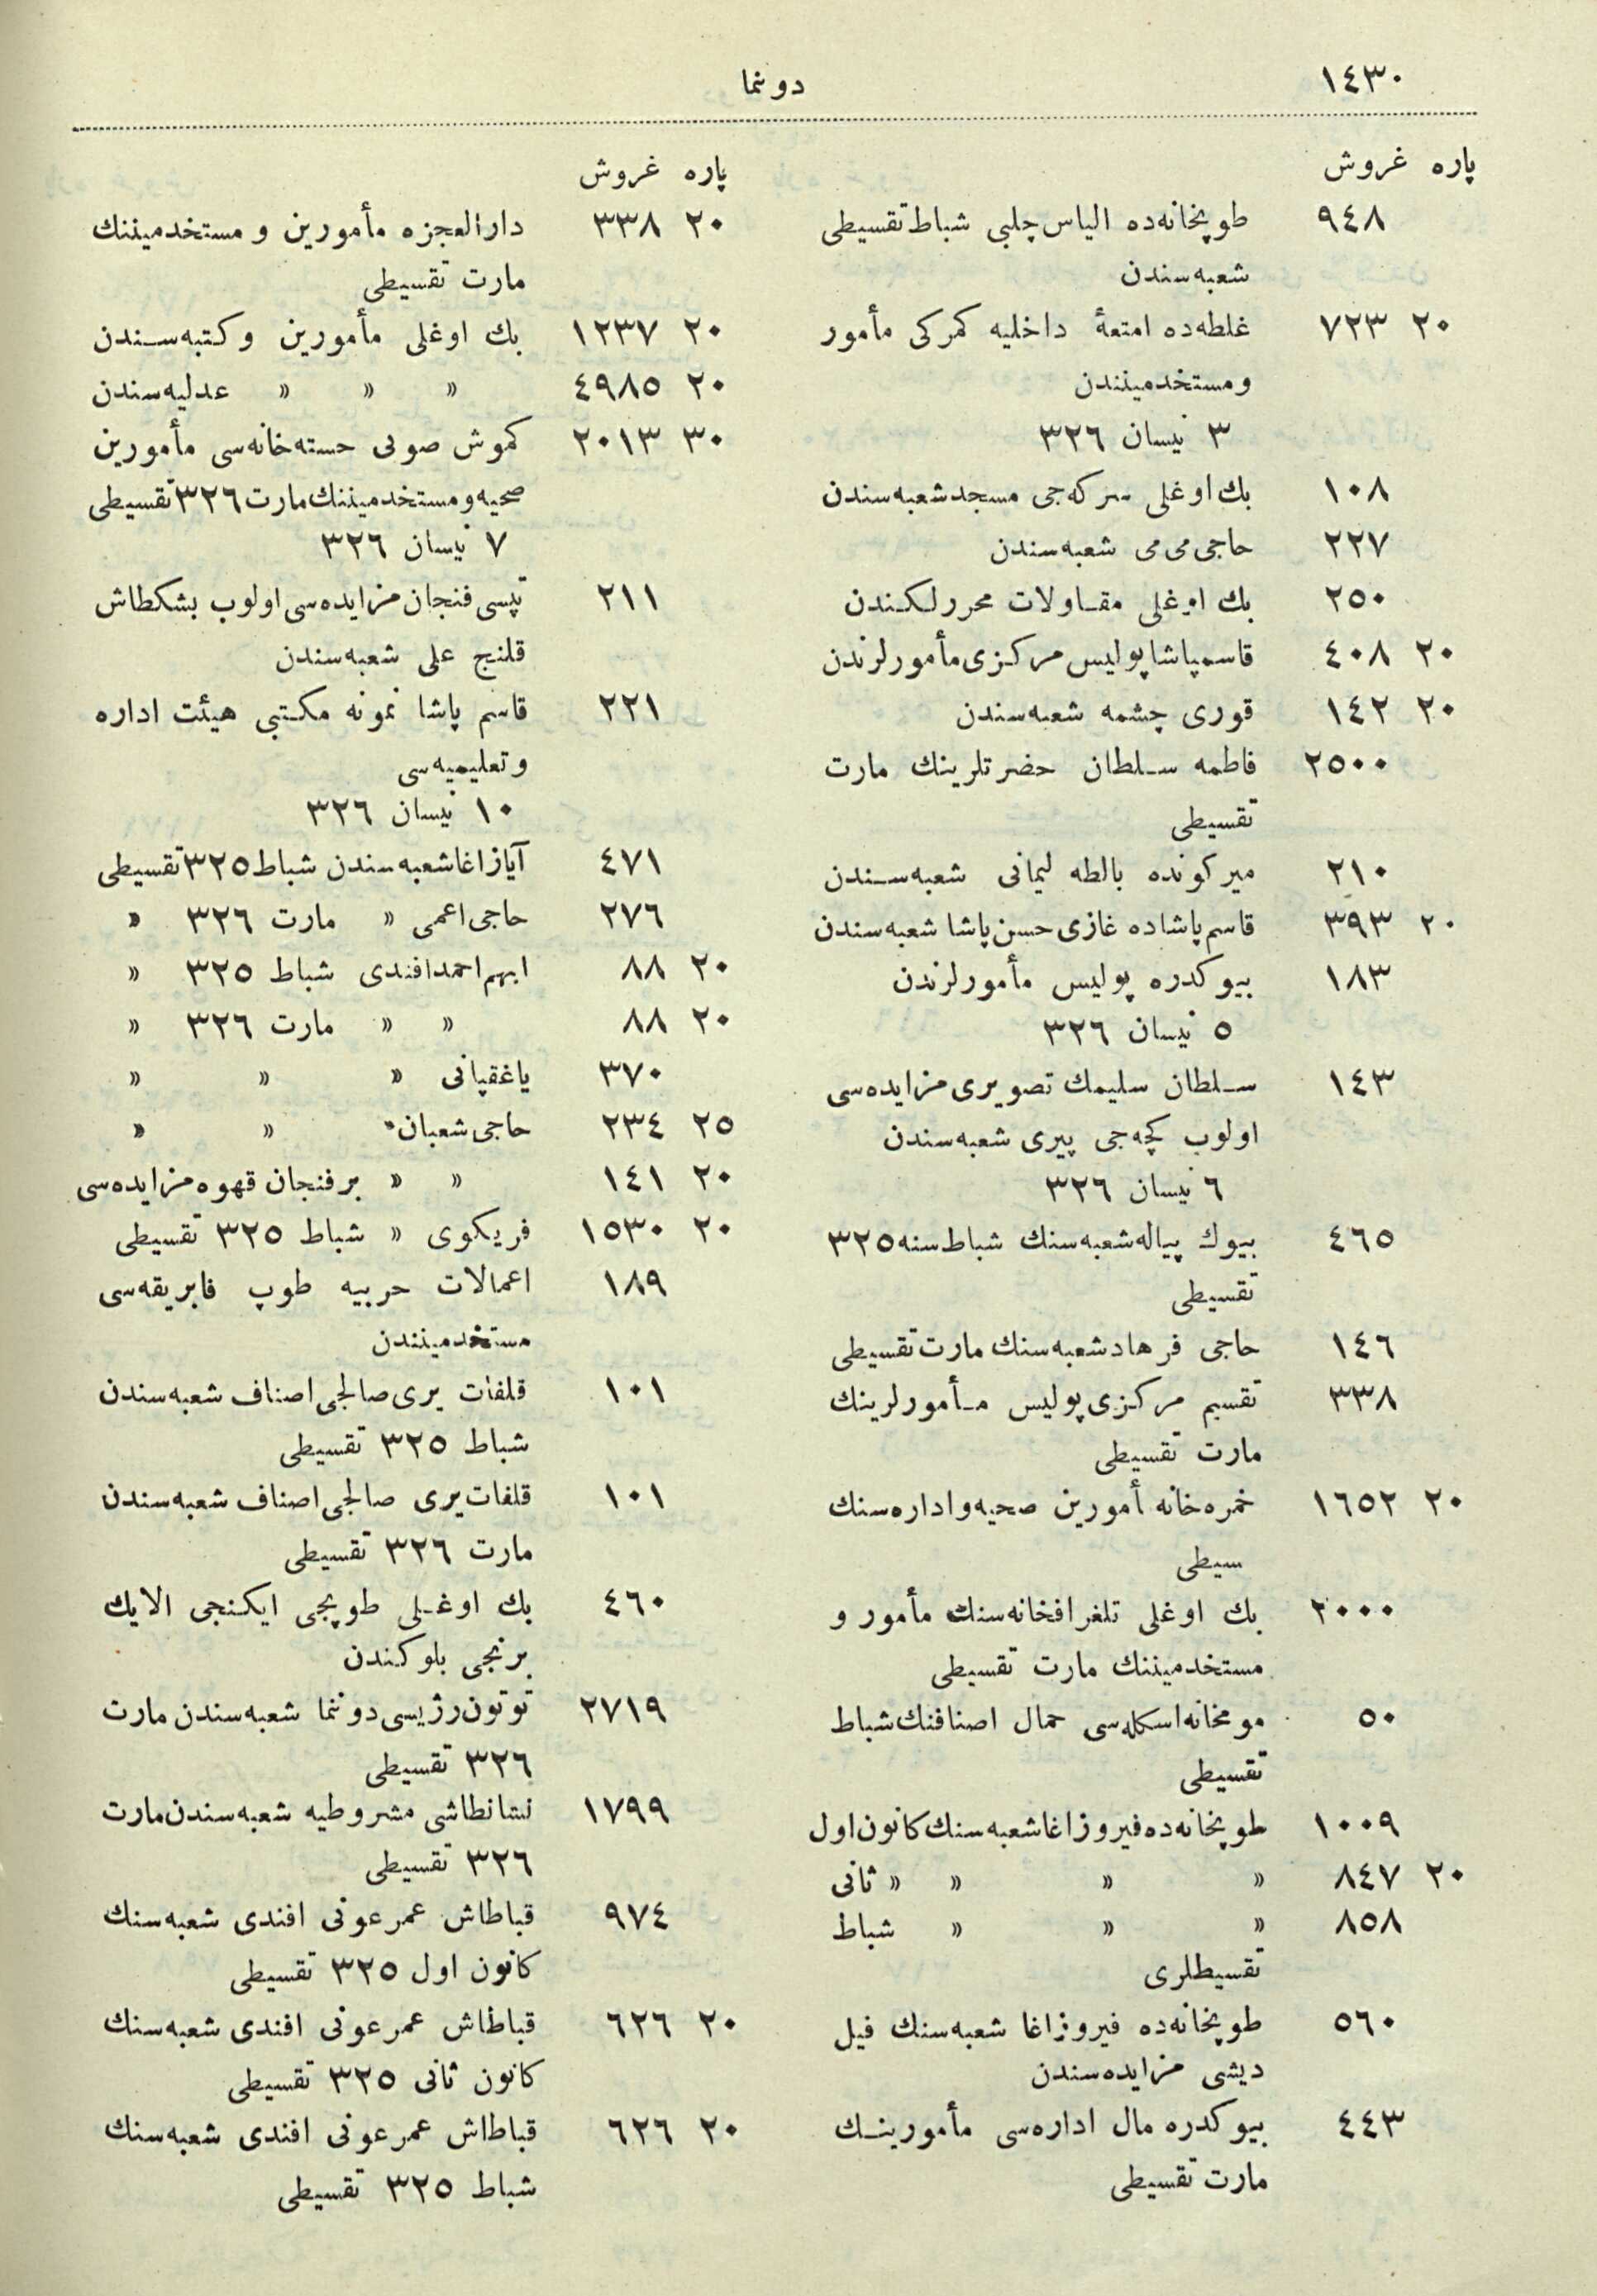 ١٤٣٠
دونما
پاره غروش
٩٤٨ طوپخانه‌ده الیاس چلبی شباط تقسیطی
شعبه‌سندن
٢٠ ٧٢٣ غلطه‌ده امتعهٔ داخلیه كمركی مأمور
ومستخدمیندن
٣ نیسان ٣٢٦
١٠٨ بك اوغلی سركه‌جی مسجد شعبه‌سندن
٢٢٧ حاجی می می شعبه‌سندن
٢٥٠ بك اوغلی مقاولات محررلكندن
٢٠ ٤٠٨ قاسمپاشا پولیس مركزی مأمورلرندن
٢٠ ١٤٢ قوری چشمه شعبه‌سندن
٢٥٠٠ فاطمه سلطان حضرتلرینك مارت
تقسیطی
٢١٠ میركونده بالطه لیمانی شعبه‌سندن
٢٠ ٣٩٣ قاسم پاشاده غازی حسن پاشا شعبه‌سندن
١٨٣ بیوكدره پولیس مأمورلرندن
٥ نیسان ٣٢٦
١٤٣ سلطان سلیمك تصویری مزایده‌سی
اولوب كچه‌جی پیری شعبه‌سندن
٦ نیسان ٣٢٦
٤٦٥ بیوك پیاله شعبه‌سنك شباط سنه ٣٢٥
تقسیطی
١٤٦ حاجی فرهاد شعبه‌سنك مارت تقسیطی
٣٣٨ تقسیم مركزی پولیس مأمورلرینك
مارت تقسیطی
٢٠ ١٦٥٢ خمره‌خانه أمورین صحیه واداره‌سنك
سیطی
٢٠٠٠ بك اوغلی تلغرافخانه‌سنك مأمور و
مستخدمیننك مارت تقسیطی
٥٠ مومخانه اسكله‌سی حمال اصنافنك شباط
تقسیطی
١٠٠٩ طوپخانه‌ده فیروزاغا شعبه‌سنك كانون اول
٢٠ ٨٤٧ « « « « ثانی
٨٥٨ « « « شباط
تقسیطلری
٥٦٠ طوپخانه‌ده فیروزاغا شعبه‌سنك فیل
دیشی مزایده‌سندن
٤٤٣ بیوكدره مال اداره‌سی مأمورینك
مارت تقسیطی
پاره غروش
٢٠ ٣٣٨ دارالعجزه مأمورین و مستخدمیننك
مارت تقسیطی
٢٠ ١٢٣٧ بك اوغلی مأمورین وكتبه‌سندن
٢٠ ٤٩٨٥ « « « عدلیه‌سندن
٣٠ ٢٠١٣ كموش صوی حسته‌خانه‌سی مأمورین
صحیه ومستخدمیننك مارت ٣٢٦ تقسیطی
٧ نیسان ٣٢٦
٢١١ تپسی فنجان مزایده‌سی اولوب بشكطاش
قلنج علی شعبه‌سندن
٢٢١ قاسم پاشا نمونه مكتبی هیئت اداره
وتعلیمیه‌سی
١٠ نیسان ٣٢٦
٤٧١ آیازاغا شعبه‌سندن شباط ٣٢٥ تقسیطی
٢٧٦ حاجی اعمی « مارت ٣٢٦ «
٢٠ ٨٨ ابهم احمد افندی شباط ٣٢٥ «
٢٠ ٨٨ « « مارت ٣٢٦ «
٣٧٠ یاغقپانی « « «
٢٥ ٢٣٤ حاجی شعبان « «
٢٠ ١٤١ « « بر فنجان قهوه مزایده‌سی
٢٠ ١٥٣٠ فریكوی « شباط ٣٢٥ تقسیطی
١٨٩ اعمالات حربیه طوپ فابریقه‌سی
مستخدمیندن
١٠١ قلفات یری صالجی اصناف شعبه‌سندن
شباط ٣٢٥ تقسیطی
١٠١ قلفات یری صالجی اصناف شعبه‌سندن
مارت ٣٢٦ تقسیطی
٤٦٠ بك اوغلی طوپجی ایكنجی الایك
برنجی بلوكندن
٢٧١٩ توتون رژیسی دوننما شعبه‌سندن مارت
٣٢٦ تقسیطی
١٧٩٩ نشانطاشی مشروطیه شعبه‌سندن مارت
٣٢٦ تقسیطی
٩٧٤ قباطاش عمرعونی افندی شعبه‌سنك
كانون اول ٣٢٥ تقسیطی
٢٠ ٦٢٦ قباطاش عمرعونی افندی شعبه‌سنك
كانون ثانی ٣٢٥ تقسیطی
٢٠ ٦٢٦ قباطاش عمرعونی افندی شعبه‌سنك
شباط ٣٢٥ تقسیطی